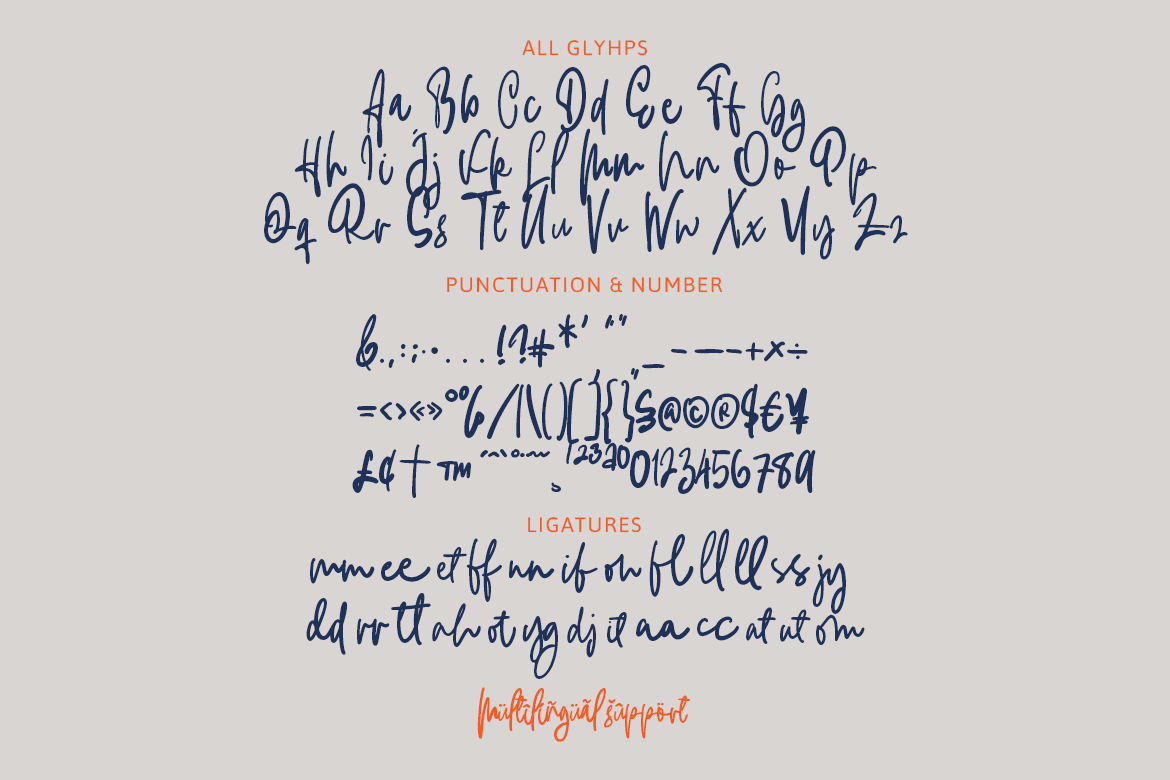 ALL GLYHPS
Aa Bb Cc Dd Ee Ff Gg
Hh Ii Jj Kk Ll Mm Nn Oo Pp
Qq Rr Ss Tt Uu Vv Ww Xx Yy Zz
PUNCTUATION & NUMBER
&.,:;·•...!?#*' “”_-–—-+×÷
=<>«»°%/|\()[]{}"§@©®$€¥
£¢†™ 0123456789
LIGATURES
mm ee et ff nn if oh fl ll ll ss jy
dd rr tt ah ot yg dj it aa cc at ut om
Mültîlíñgüãl šûppört